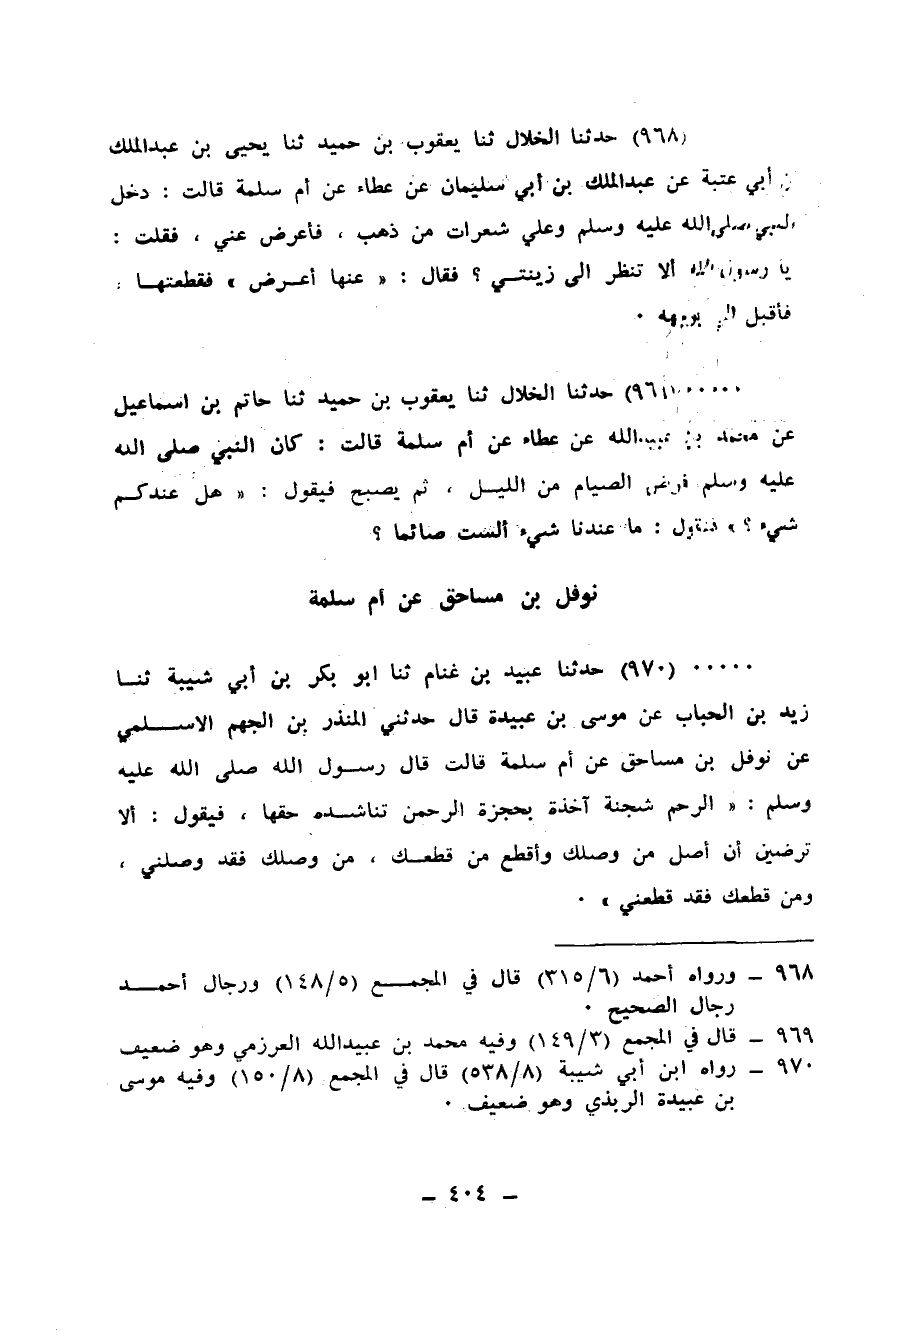 (٩٦٨) حدثنا الخلال ثنا يعقوب بن حميد ثنا يحيى بن عبدالملك
بن أبي عتبة عن عبدالملك بن أبي سليمان عن عطاء عن أم سلمة قالت : دخل
النبي صلى الله عليه وسلم وعلي شعرات من ذهب ، فأعرض عني ، فقلت :
يا رسول الله ألا تنظر الى زينتــي ؟ فقال : « عنها أعــرض » فقطعتهــا ،
فأقبل الي بوجهه ٠
٠٠٠٠٠ (٩٦٩) حدثنا الخلال ثنا يعقوب بن حميد ثنا حاتم بن اسماعيل
عن محمد بن عبيدالله عن عطاء عن أم سلمة قالت : كان النبي صلى الله
عليه وسلم فرض الصيام من الليــل ، ثم يصبح فيقول : « هل عندكــم
شيء ؟ » فنقول : ما عندنا شيء ألست صائما ؟
نوفل بن مساحق عن أم سلمة
٠٠٠٠٠ (٩٧٠) حدثنا عبيد بن غنام ثنا ابو بكر بن أبي شيبة ثنــا
زيد بن الحباب عن موسى بن عبيدة قال حدثني المنذر بن الجهم الاســـلمي
عن نوفل بن مساحق عن أم سلمة قالت قال رســول الله صلى الله عليه
وسلم : « الرحم شجنة آخذة بحجزة الرحمن تناشــده حقها ، فيقول : ألا
ترضين أن أصل من وصلك وأقطع من قطعــك ، من وصلك فقد وصلني ،
ومن قطعك فقد قطعني » ٠
٩٦٨ ــ ورواه أحمد (٣١٥/٦) قال في المجمـــع (١٤٨/٥) ورجال أحمـــد
رجال الصحيح ٠
٩٦٩ ــ قال في المجمع (١٤٩/٣) وفيه محمد بن عبيدالله العرزمي وهو ضعيف
٩٧٠ ــ رواه ابن أبي شيبة (٥٣٨/٨) قال في المجمع (١٥٠/٨) وفيه موسى
بن عبيدة الربذي وهو ضعيف ٠
ــ ٤٠٤ ــ